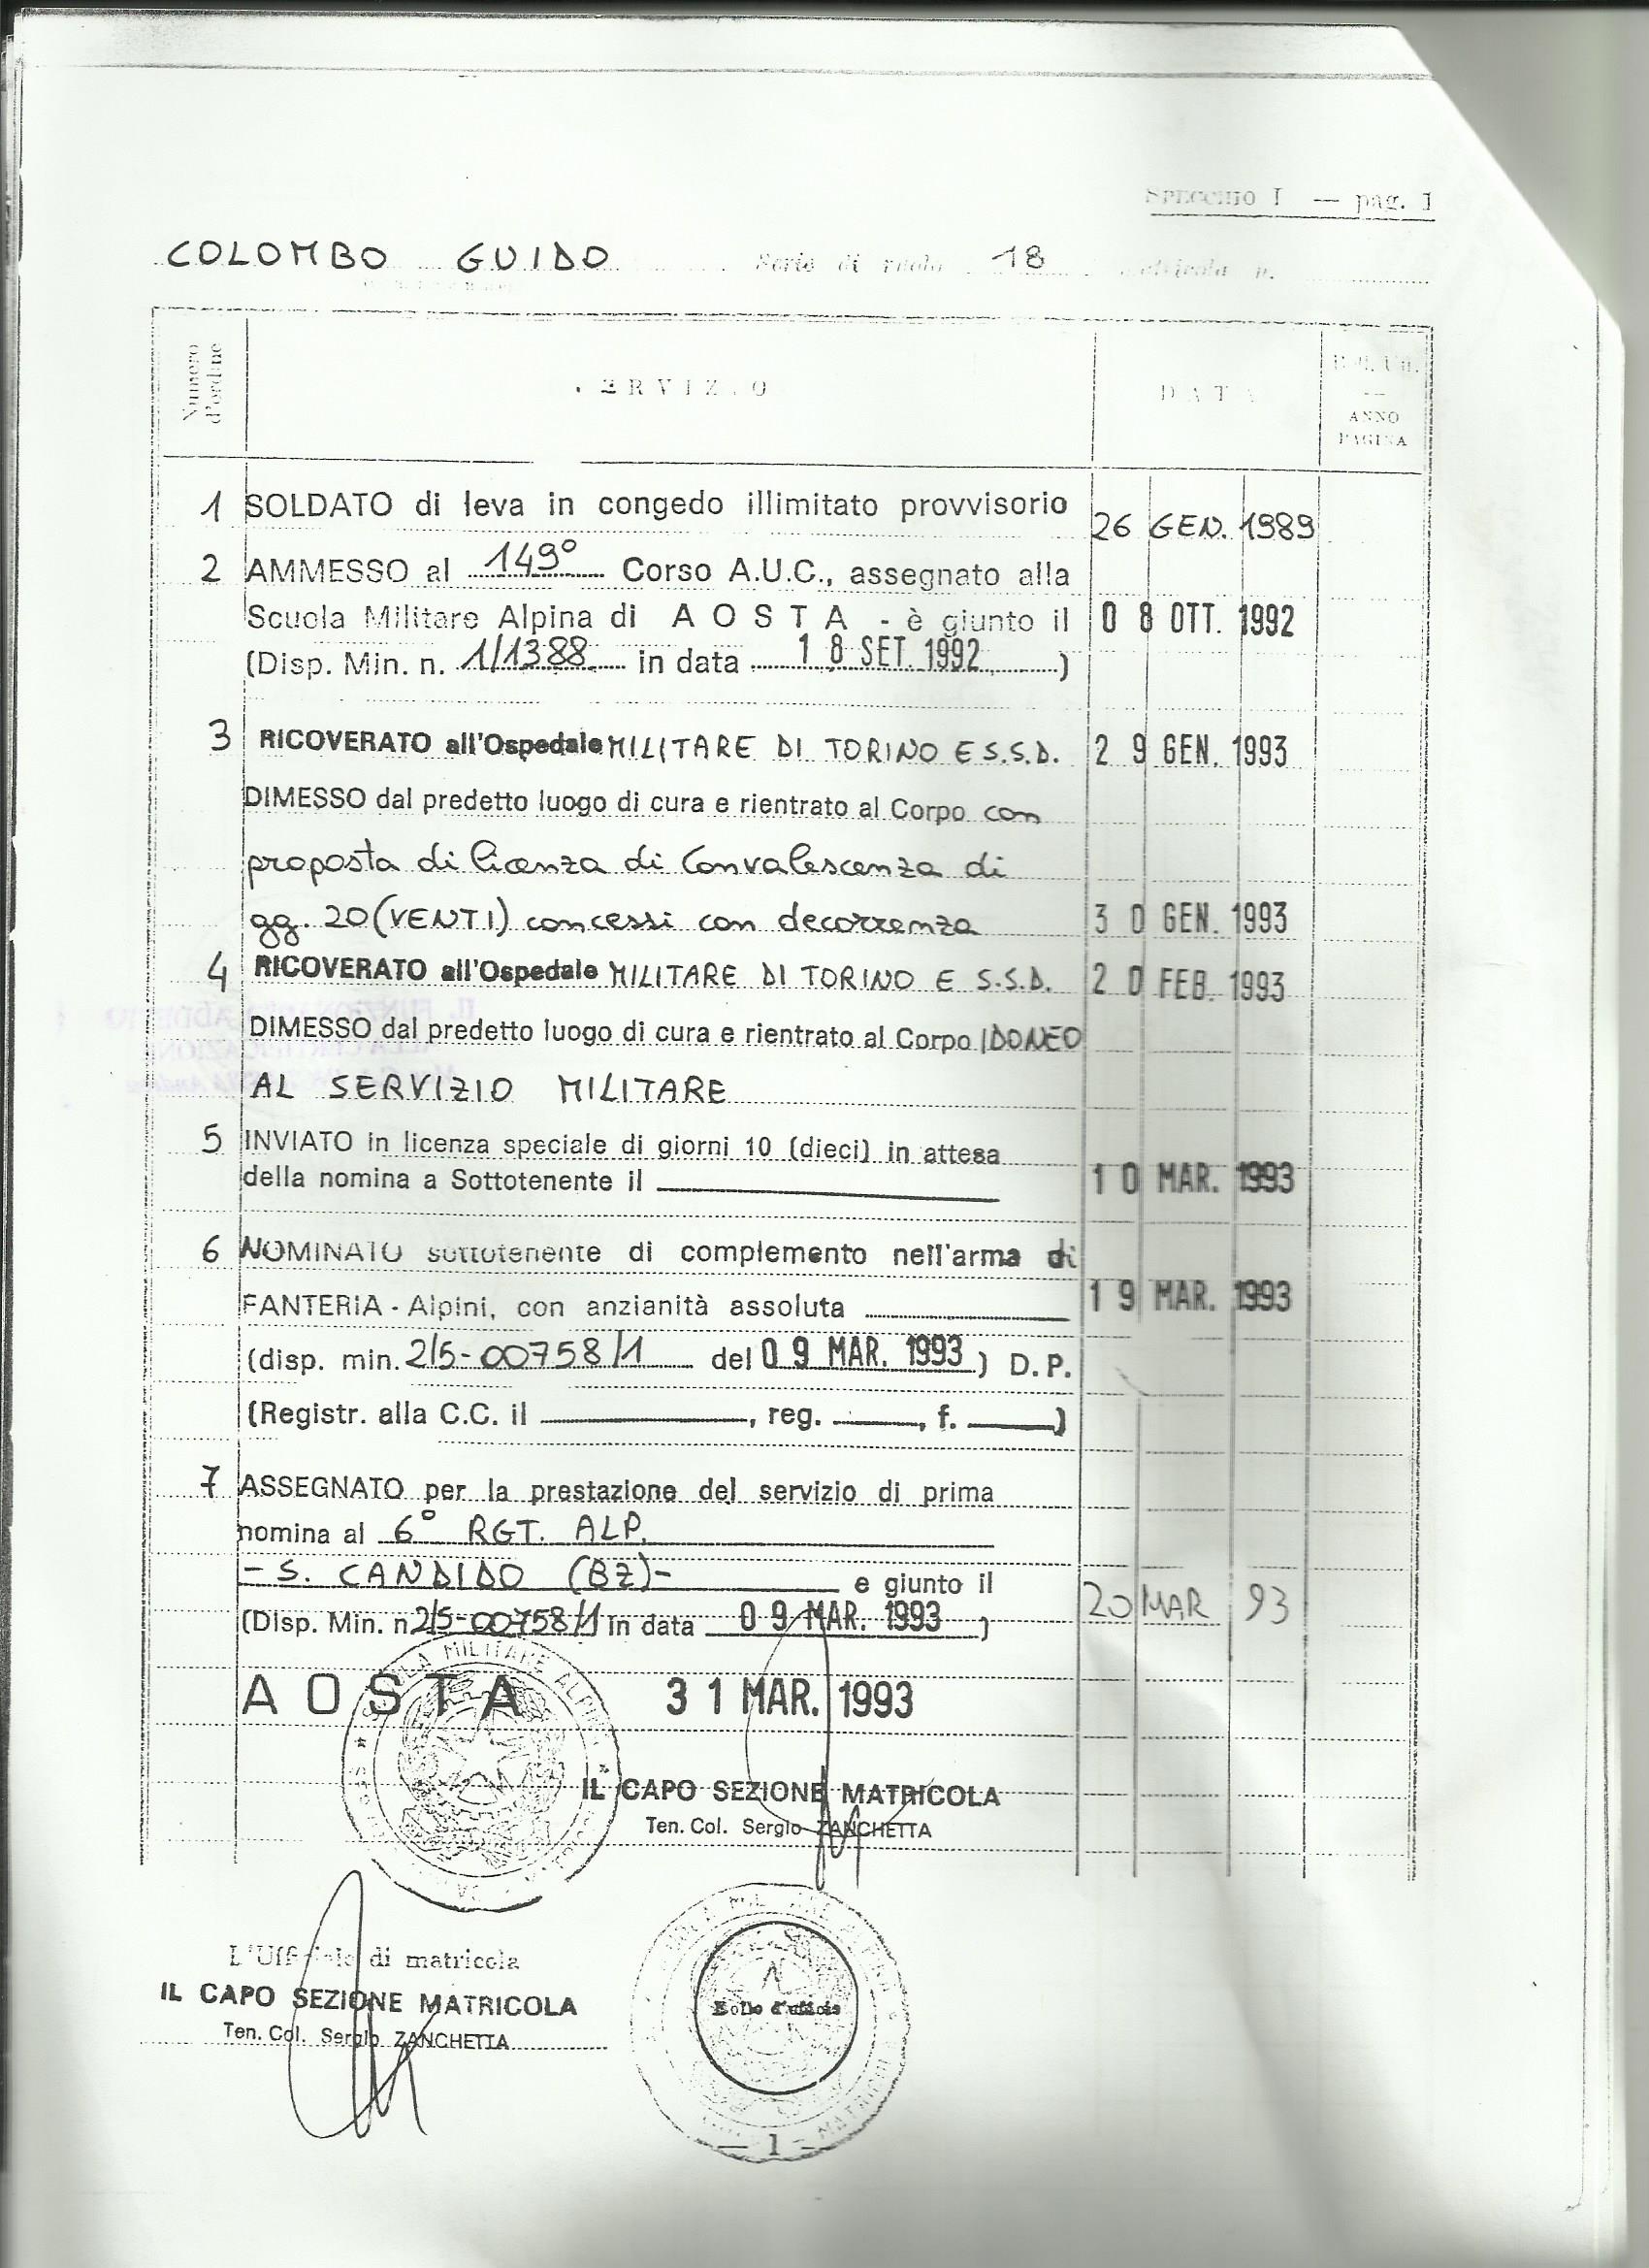 SPECCHIO I — pag. 1
COLOMBO GUIDO Serie di ruolo 18 matricola n.
Numero d'ordine
SERVIZIO
DATA
ANNO
PAGINA
1 SOLDATO di leva in congedo illimitato provvisorio 26 GEN. 1989
2 AMMESSO al 149° Corso A.U.C., assegnato alla
Scuola Militare Alpina di AOSTA - è giunto il 08 OTT. 1992
(Disp. Min. n. 1/1388 in data 18 SET. 1992)
3 RICOVERATO all'Ospedale MILITARE DI TORINO E S.S.D. 29 GEN. 1993
DIMESSO dal predetto luogo di cura e rientrato al Corpo con
proposta di licenza di Convalescenza di
gg. 20 (VENTI) concessi con decorrenza 30 GEN. 1993
4 RICOVERATO all'Ospedale MILITARE DI TORINO E S.S.D. 20 FEB. 1993
DIMESSO dal predetto luogo di cura e rientrato al Corpo IDONEO
AL SERVIZIO MILITARE
5 INVIATO in licenza speciale di giorni 10 (dieci) in attesa
della nomina a Sottotenente il 10 MAR. 1993
6 NOMINATO sottotenente di complemento nell'arma di
FANTERIA - Alpini, con anzianità assoluta 19 MAR. 1993
(disp. min. 2/5-00758/1 del 09 MAR. 1993) D.P.
(Registr. alla C.C. il , reg. , f. )
7 ASSEGNATO per la prestazione del servizio di prima
nomina al 6° RGT. ALP.
- S. CANDIDO (BZ) - e giunto il 20 MAR 93
(Disp. Min. n. 2/5-00758/1 in data 09 MAR. 1993)
AOSTA 31 MAR. 1993
SCUOLA MILITARE ALPINA
IL CAPO SEZIONE MATRICOLA
Ten. Col. Sergio ZANCHETTA
L'Ufficiale di matricola
IL CAPO SEZIONE MATRICOLA
Ten. Col. Sergio ZANCHETTA
Bollo d'ufficio
— 1 —